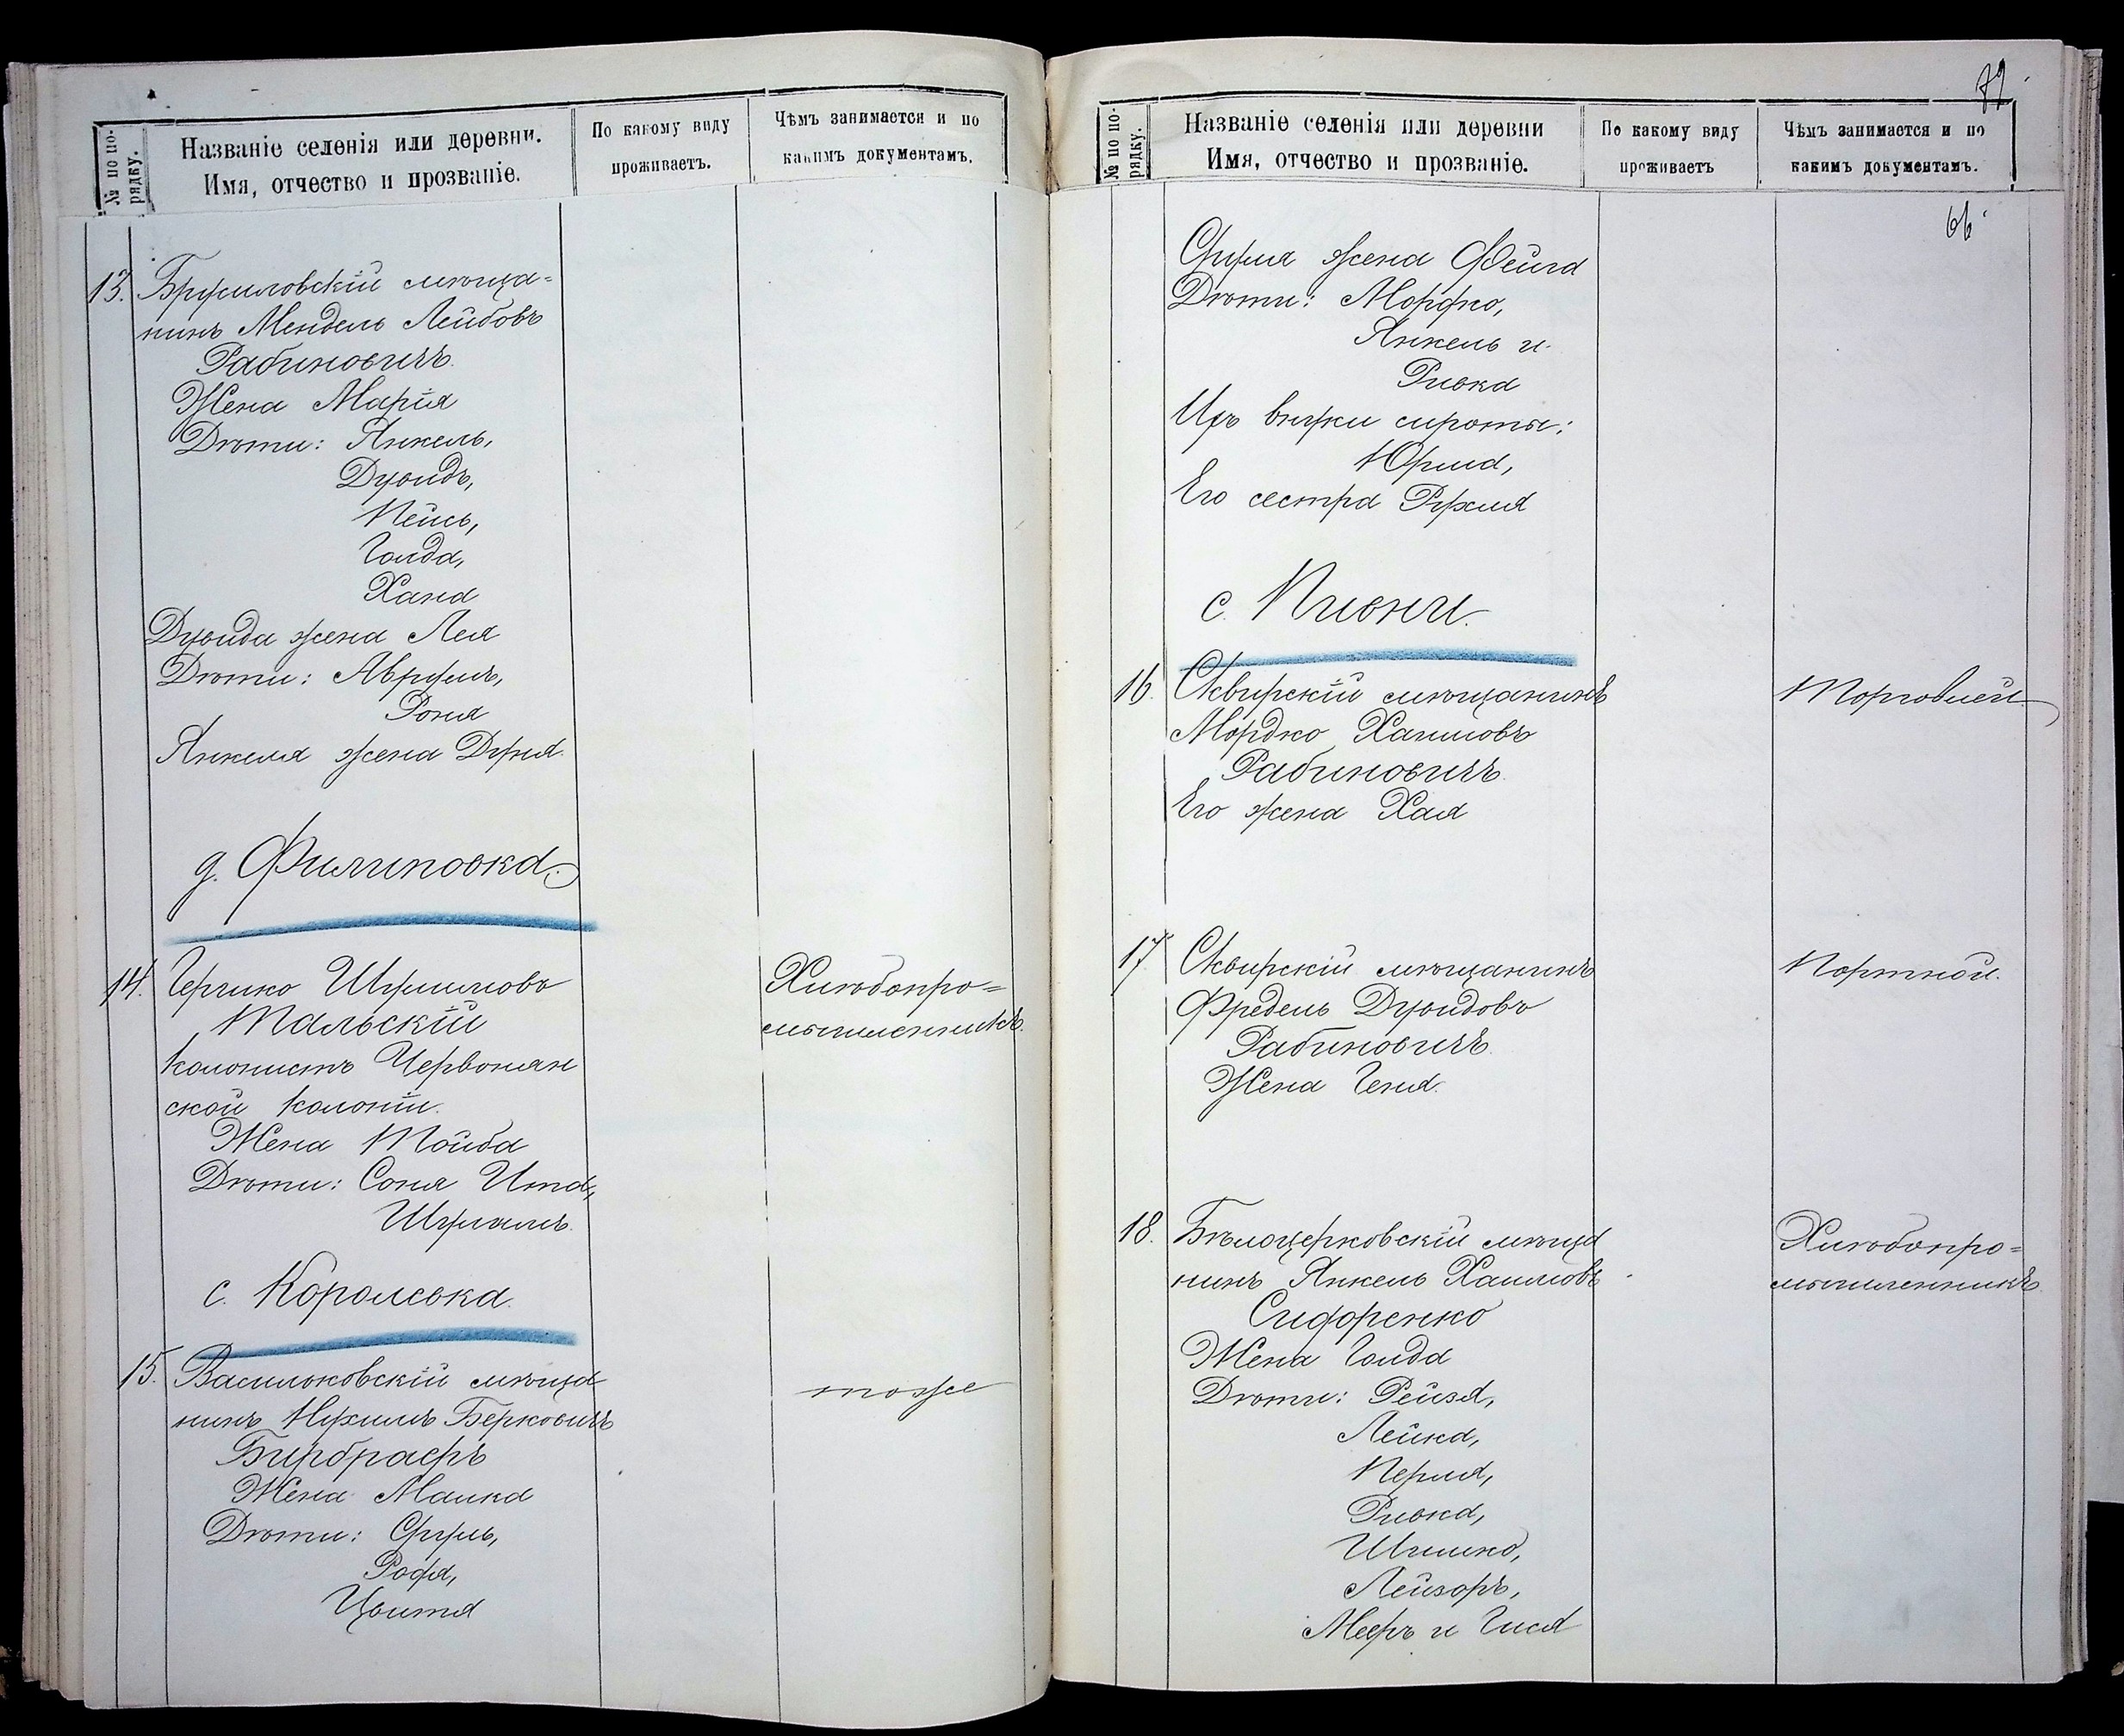 № по по-
рядку.
Названіе селенія или деревни.
Имя, отчество и прозваніе.
По какому виду
проживаетъ.
Чѣмъ занимается и по
какимъ документамъ.
13. Брусиловскій мѣща-
нинъ Мендель Лейбовъ
Рабиновичъ.
Жена Марія
Дѣти: Янкель,
Дувидъ,
Пейсь,
Голда,
Хана
Дувида жена Лея
Дѣти: Аврумъ,
Роня
Янкеля жена Духня.
д. Филиповка.
14. Гершко Шулимовъ
Тальскій
колонистъ Червонян
ской колоніи.
Жена Тойба
Дѣти: Соня Ита,
Шулимъ.
Хлѣбопро=
мышленникъ.
с. Королевка.
15. Васильковскій мѣща
нинъ Нухимъ Берковичъ
Бирбраеръ
Жена Малка
Дѣти: Сруль,
Рося,
Цвитя
тоже
71.
№ по по-
рядку.
Названіе селенія или деревни
Имя, отчество и прозваніе.
По какому виду
проживаетъ
Чѣмъ занимается и по
какимъ документамъ.
66
Сруля жена Фейга
Дѣти: Мордко,
Янкель и
Ривка
Ихъ внуки сироты:
Юрма,
Его сестра Рухля
с. Пивни.
16. Сквирскій мѣщанинъ
Мордко Хаимовъ
Рабиновичъ.
Его жена Хая
Торговлей
17. Сквирскій мѣщанинъ
Фредель Дувидовъ
Рабиновичъ.
Жена Геня.
Портной.
18. Бѣлоцерковскій мѣща
нинъ Янкель Хаимовъ
Сидоренко
Жена Голда
Дѣти: Рейзя,
Лейка,
Перля,
Ривка,
Шлико,
Лейзоръ,
Мееръ и Гися
Хлѣбопро=
мышленникъ